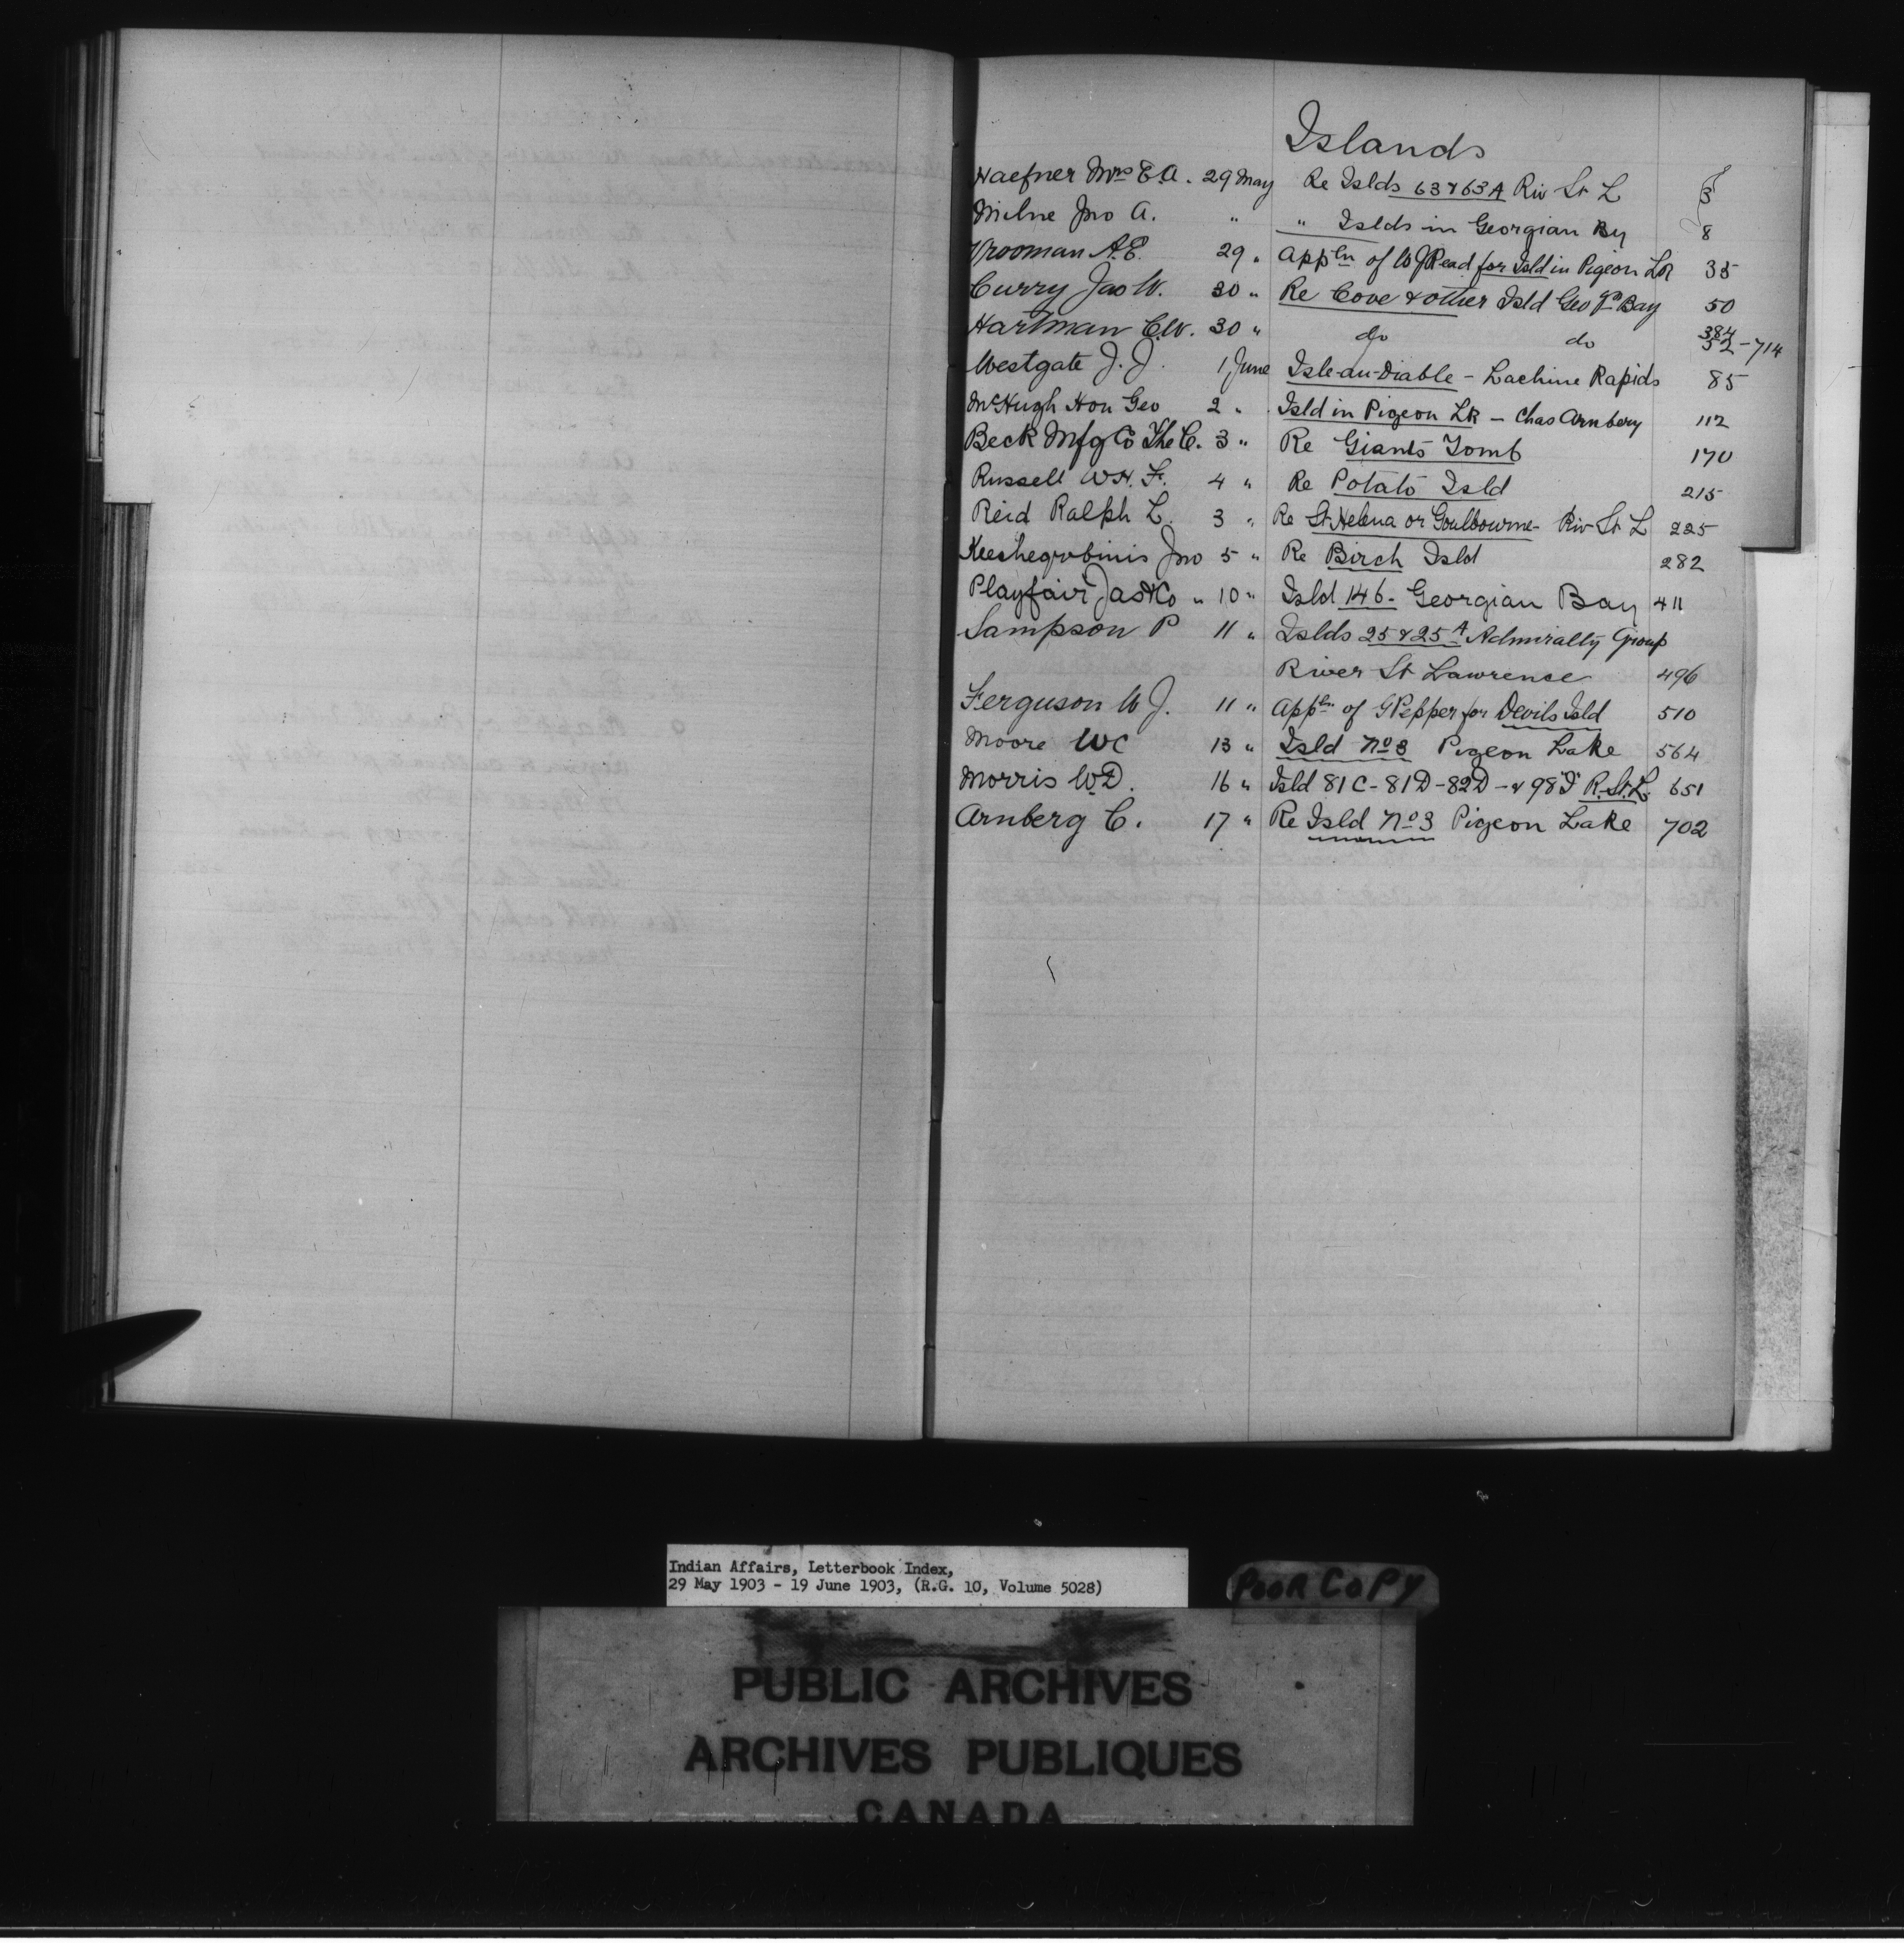 Islands
Haefner Mrs E.A. 29 May Re Islds 63 & 63A Riv St L 3
Milne Jno A. " " Islds in Georgian By 8
Vrooman A.E. 29 " Appln of W J Read for Isld in Pigeon Lk 35
Curry Jas W. 30 " Re Cove & other Isld Geo gn Bay 50
Hartman C.W. 30 " do do 384 52-714
Westgate J.J. 1 June Isle-au-Diable - Lachine Rapids 85
McHugh Hon Geo 2 " Isld in Pigeon Lk - Chas Arnberg 112
Beck Mfg Co The C. 3 " Re Giants Tomb 170
Russell W.H.F. 4 " Re Potato Isld 215
Reid Ralph L. 3 " Re St Helena or Goulbourne - Riv St L 225
Keeshegobinis Jno 5 " Re Birch Isld 282
Playfair Jas & Co " 10 " Isld 146 - Georgian Bay 411
Sampson P 11 " Islds 25 & 25A Admiralty Group
River St Lawrence 496
Ferguson W J. 11 " Appln of G Pepper for Devils Isld 510
Moore WC 13 " Isld No 3 Pigeon Lake 564
Morris W.D. 16 " Isld 81C - 81D - 82D - & 98"I" R. St. L. 651
Arnberg C. 17 " Re Isld No 3 Pigeon Lake 702
Indian Affairs, Letterbook Index,
29 May 1903 - 19 June 1903, (R.G. 10, Volume 5028)
POOR COPY
PUBLIC ARCHIVES
ARCHIVES PUBLIQUES
CANADA